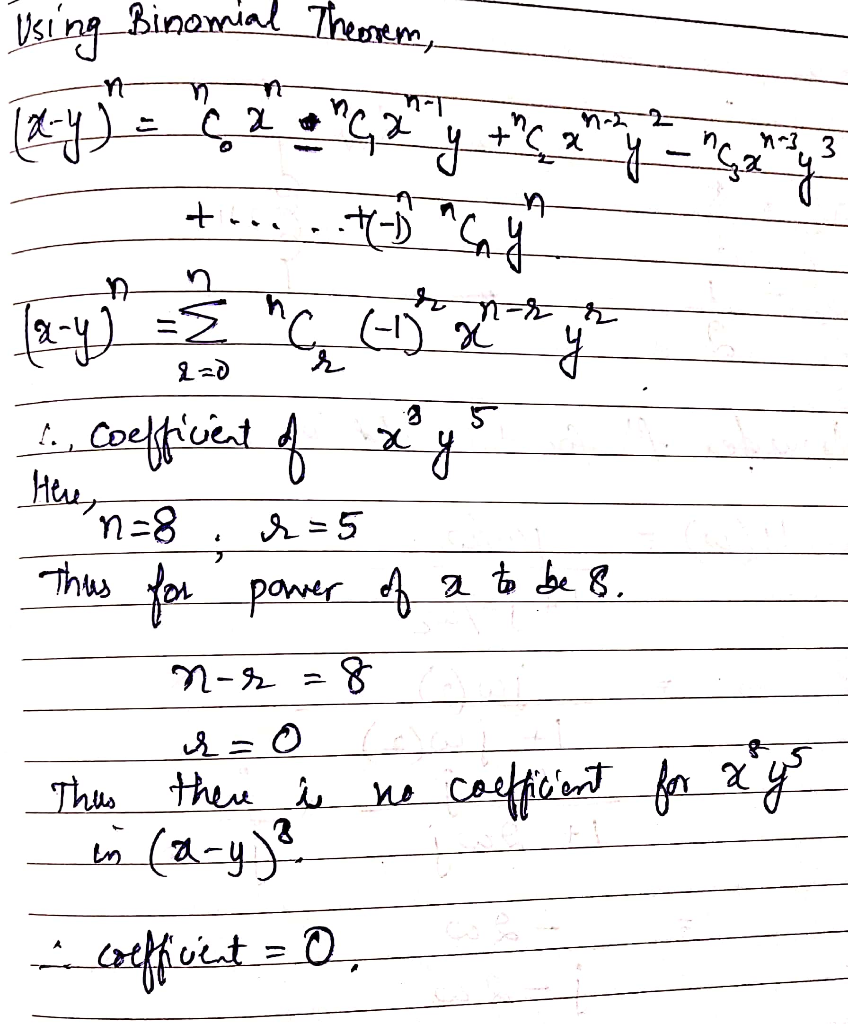 Using Binomial Theorem,
(x-y)ⁿ = ⁿC₀ xⁿ - ⁿC₁ xⁿ⁻¹ y + ⁿC₂ xⁿ⁻² y² - ⁿC₃ xⁿ⁻³ y³
+ ..... + (-1)ⁿ ⁿCₙ yⁿ
(x-y)ⁿ = Σⁿᵣ₌₀ ⁿCᵣ (-1)ʳ xⁿ⁻ʳ yʳ
∴, coefficient of x⁸ y⁵
Here,
n=8 ; r=5
Thus for power of x to be 8.
n-r = 8
r = 0
Thus there is no coefficient for x⁸y⁵
in (x-y)⁸.
∴ coefficient = 0.